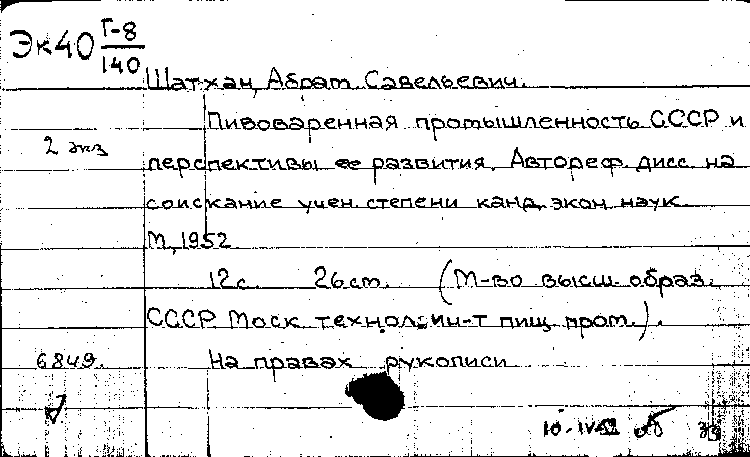 Эк40 Г-8/140
Шатхан, Абрам Савельевич.
Пивоваренная промышленность СССР и
2 экз
перспективы ее развития. Автореф. дисс. на
соискание учен. степени канд. экон. наук.
М., 1952
12 с. 26 см. (М-во высш. образ.
СССР. Моск. технол. ин-т пищ. пром.).
6849.
На правах рукописи
10-IV-52